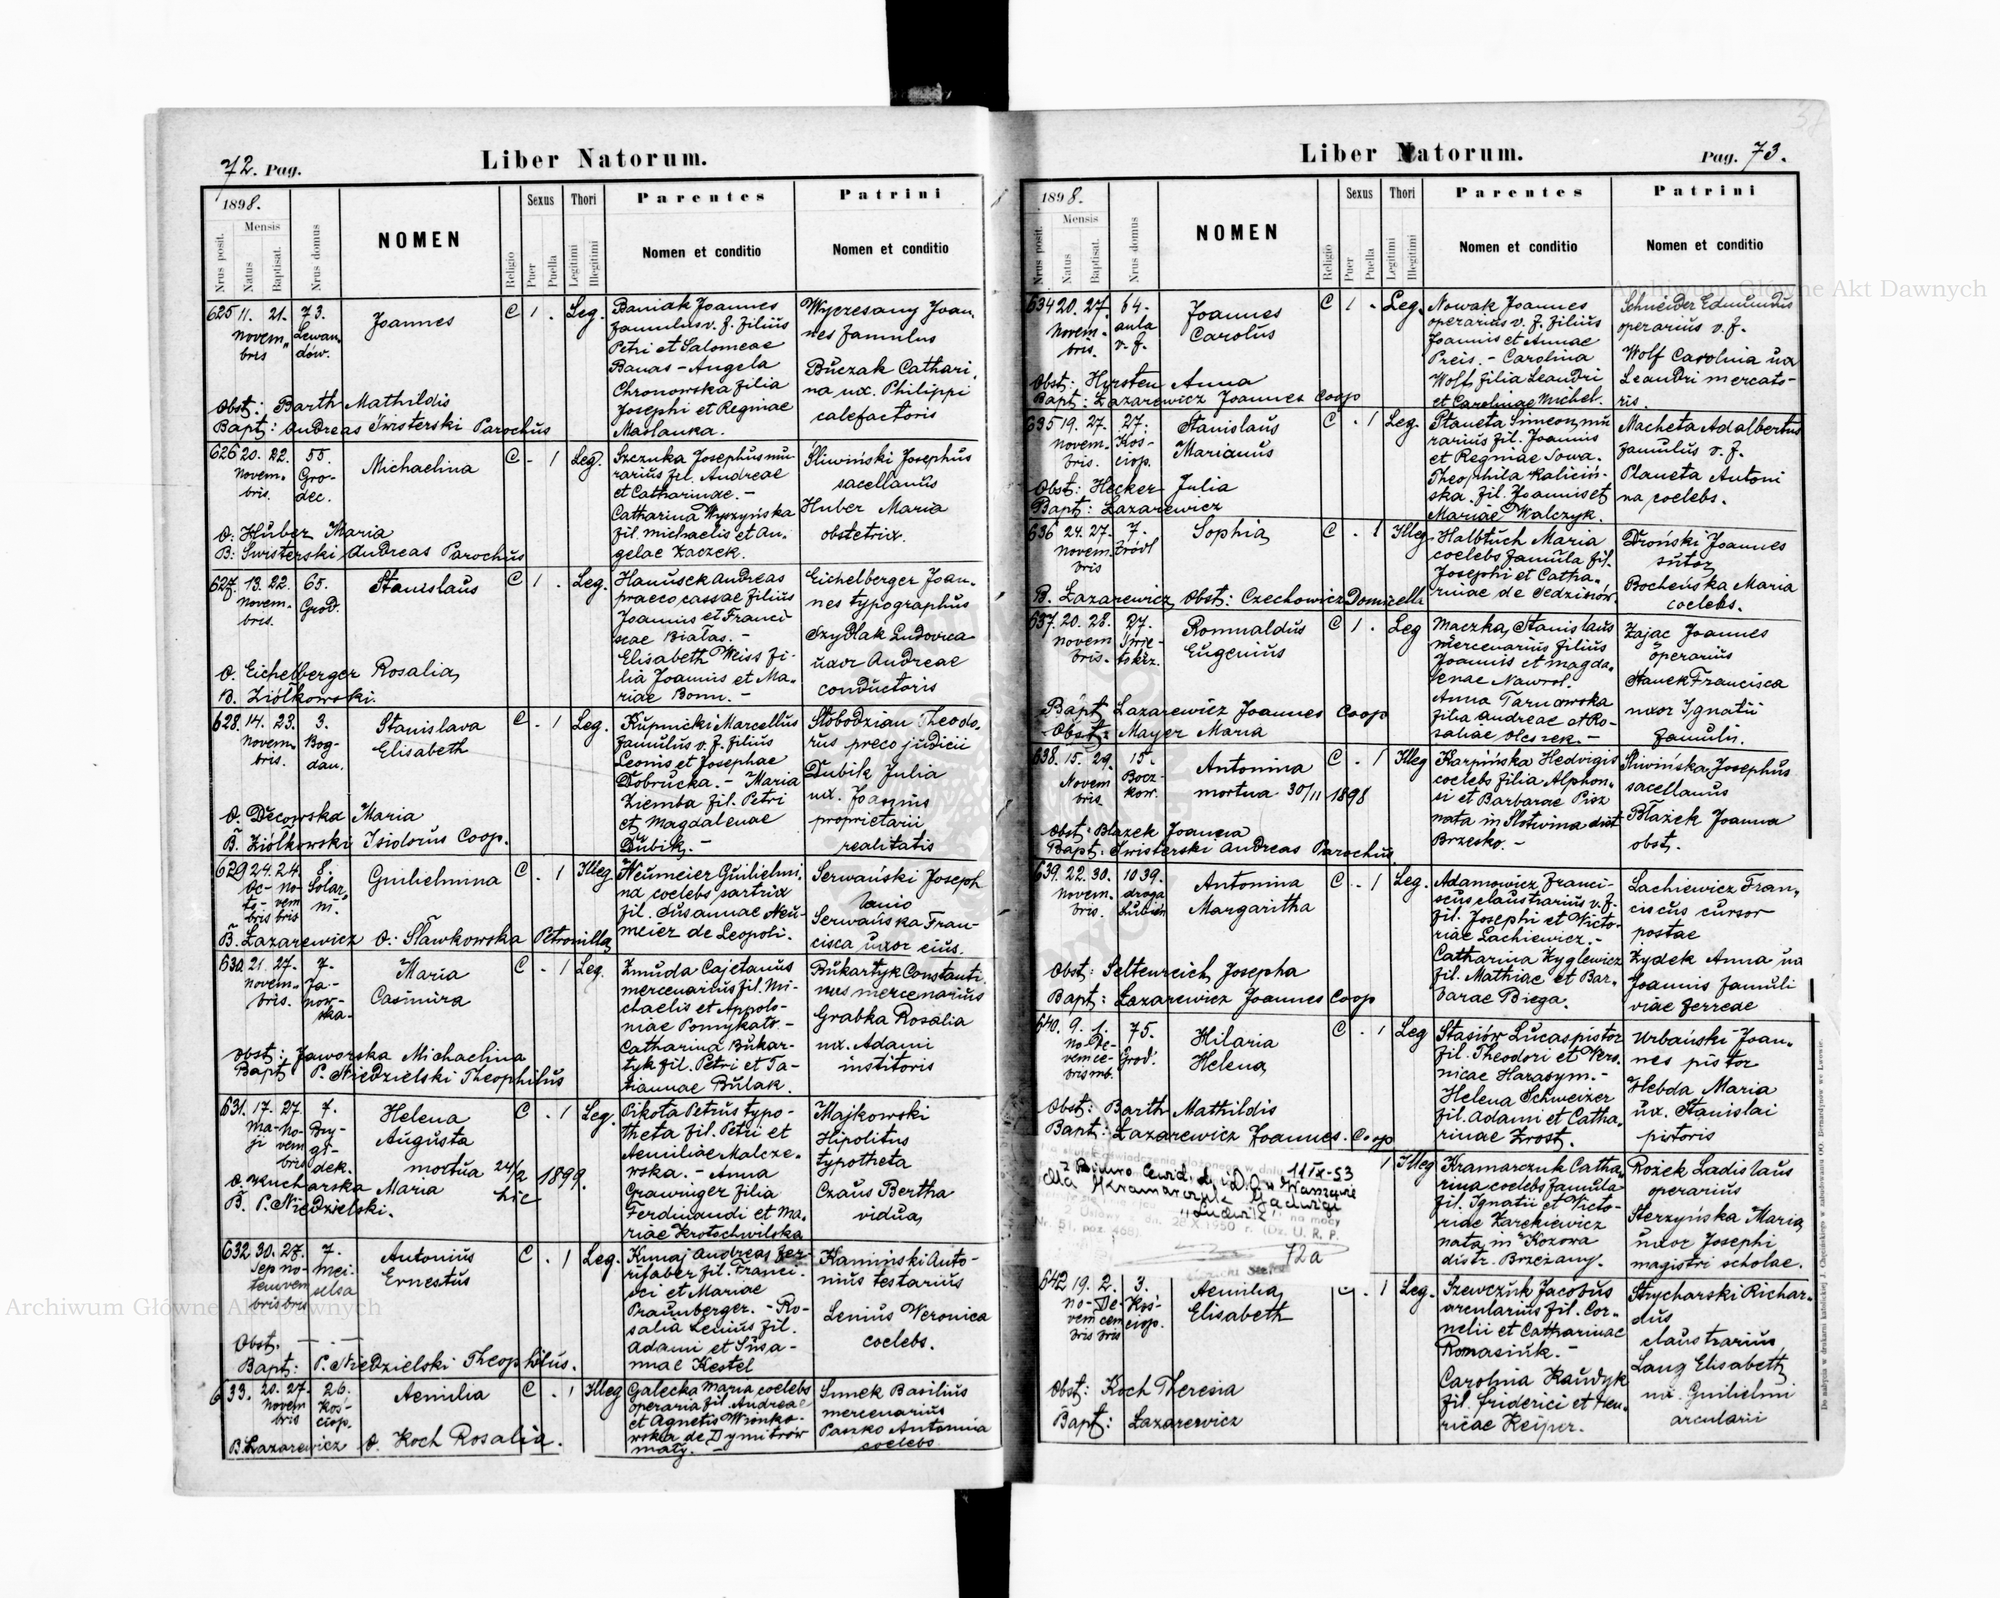 72. Pag.
Liber Natorum.
1898.
Mensis
Nrus posit.
Natus
Baptisat.
Nrus domus
NOMEN
Religio
Sexus
Puer
Puella
Thori
Legitimi
Illegitimi
Parentes
Nomen et conditio
Patrini
Nomen et conditio
625 11. 21. 73.
Novem-
bris
Joannes
C 1 . Leg.
Baniak Joannes
famulus v. f. filius
Petri et Salomeae
Banas - Angela
Chronowska filia
Josephi et Reginae
Maslanka.
Wyczesany Joan-
nes famulus
Buczak Cathari-
na ux. Philippi
calefactoris
Obst: Barth Mathildis
Bapt: Andreas Swisterski Parochus
626 20. 22. 55.
Novem- Gro-
bris. dec.
Michaelina
C - 1 Leg.
Szczuka Josephus mu-
rarius fil. Andreae
et Catharinae. -
Catharina Wyszyńska
fil. Michaelis et An-
gelae Zaczek.
Sliwiński Josephus
sacellanus
Huber Maria
obstetrix.
O. Huber Maria
B: Swisterski Andreas Parochus
627. 13. 22. 65.
Novem- Grod.
bris.
Stanislaus
C 1 . Leg.
Hanusek Andreas
praeco cassae filius
Joannis et Franci-
scae Bialas. -
Elisabeth Weiss fi-
lia Joannis et Ma-
riae Bonn. -
Eichelberger Joan-
nes typographus
Szydlak Ludovica
uxor Andreae
conductoris
O. Eichelberger Rosalia
B. Ziólkowski.
628. 14. 23. 3.
Novem- Bog-
bris. dan.
Stanislava
Elisabeth
C . 1 Leg.
Kupnicki Marcellus
famulus v. f. filius
Leonis et Josephae
Dobrucka. - Maria
Ziemba fil. Petri
et Magdalenae
Dubik. -
Slobodzian Theodo-
rus preco judicii
Dubik Julia
ux. Joannis
proprietarii
realitatis
O. Decowska Maria
B. Ziólkowski Isidorus Coop.
629 24. 24. 8.
Oc- No- Solar-
to- vem ni.
bris bris
Guilielmina
C . 1 Illeg
Neumeier Guilielmi-
na coelebs sartrix
fil. Susannae Neu-
meier de Leopoli.
Serwański Joseph
lanio
Serwańska Fran-
cisca uxor eius.
B. Lazarewicz O. Sławkowska Petronilla
630. 21. 27. 7.
Novem- Ja-
bris. now-
ska.
Maria
Casimira
C . 1 Leg.
Zmuda Cajetanus
mercenarius fil. Mi-
chaelis et Appolo-
niae Pomykato. -
Catharina Bukar-
tyk fil. Petri et Ta-
tiannae Bulak.
Bukartyk Constanti-
nus mercenarius
Grabka Rosalia
ux. Adami
institoris
Obst: Jaworska Michaelina
Bapt P. Niedzielski Theophilus
631. 17. 27. 7.
Ma- No-
ji vem
bris
Helena
Augusta
mortua 24/2 1899.
hic
C . 1 Leg.
Pikota Petrus typo-
theta fil. Petri et
Aemiliae Malcze-
wska. - Anna
Grawinger filia
Ferdinandi et Ma-
riae Krotschwilska
Majkowski
Hipolitus
typotheta
Czaus Bertha
vidua
O. Kucharska Maria
B. P. Niedzielski.
632 30. 27. 7.
Sep No- Mei-
tem vem selsa
bris bris
Antonius
Ernestus
C . 1 Leg.
Kmaj Andreas fer-
rifaber fil. Franci-
sci et Mariae
Praumberger. - Ro-
salia Lenius fil.
Adami et Susa-
nnae Kestel
Kamiński Anto-
nius testarius
Lenius Veronica
coelebs.
Obst. - . -
Bapt: P. Niedzielski Theophilus.
633. 20. 27. 26.
Novem Koś-
bris ciop.
Aemilia
C . 1 Illeg
Galecka Maria coelebs
operaria fil. Andreae
et Agnetis Wronko-
wska de Dymitrów
maty. -
Smek Basilius
mercenarius
Paszko Antonina
coelebs
B. Lazarewicz O. Koch Rosalia.
Liber Natorum.
Pag. 73.
1898.
Mensis
Nrus posit.
Natus
Baptisat.
Nrus domus
NOMEN
Religio
Sexus
Puer
Puella
Thori
Legitimi
Illegitimi
Parentes
Nomen et conditio
Patrini
Nomen et conditio
634 20. 27. 64.
Novem- aula
bris. v. f.
Joannes
Carolus
C 1 . Leg.
Nowak Joannes
operarius v. f. filius
Joannis et Annae
Preis. - Carolina
Wolf filia Leandri
et Carolinae Michel.
Schneider Edmundus
operarius v. f.
Wolf Carolina ux
Leandri mercato-
ris.
Obst: Hyrsten Anna
Bapt: Lazarewicz Joannes Coop
635 19. 27. 27.
Novem- Kos-
bris. ciop.
Stanislaus
Marianus
C . 1 Leg.
Planeta Simeon mu
rarius fil. Joannis
et Reginae Sowa.
Theophila Kalicin-
ska. fil. Joannis et
Mariae Walczyk.
Macheta Adalbertus
famulus v. f.
Planeta Antoni
na coelebs.
Obst: Hecker Julia
Bapt: Lazarewicz
636 24. 27. 7.
Novem- Zródl
bris
Sophia
C . 1 Illeg
Halbtuch Maria
coelebs famula fil.
Josephi et Catha-
rinae de Sedziszów.
Droński Joannes
sutor
Bocheńska Maria
coelebs.
B. Lazarewicz Obst: Czechowicz Domicella
637. 20. 28. 27.
Novem Swię-
bris. tokrz.
Romualdus
Eugenius
C 1 . Leg
Maczka Stanislaus
mercenarius filius
Joannis et Magda-
lenae Nawrol.
Anna Tarnowska
filia Andreae et Ro-
saliae Olczek. -
Zajac Joannes
operarius
Hanek Francisca
uxor Ignatii
famuli.
Bapt Lazarewicz Joannes Coop
Obst: Mayer Maria
638. 15. 29. 15.
Novem Bocz-
bris. kow.
Antonina
mortua 30/11 1898
C . 1 Illeg
Karpińska Hedvigis
coelebs filia Alphon-
si et Barbarae Pisz
nata in Slotwina distr
Brzesko. -
Sliwińska Josephus
sacellanus
Blażek Joanna
obst.
Obst. Blazek Joanna
Bapt. Swisterski Andreas Parochus
639. 22. 30. 1039.
Novem- droga
bris. Lubień
Antonina
Margaritha
C . 1 Leg.
Adamowicz Franci-
scus claustrarius v. f.
fil. Josephi et Victo-
riae Lachiewicz. -
Catharina Kyglewicz
fil. Mathiae et Bar-
barae Biega.
Lachiewicz Fran-
ciscus cursor
postae
Zydek Anna ux
Joannis famuli
viae ferreae
Obst: Seltenreich Josepha
Bapt: Lazarewicz Joannes Coop
640. 9. 1. 75.
No- De- Grod.
vem ce-
bris mb.
Hilaria
Helena
C . 1 Leg
Stasiów Lucas pistor
fil. Theodori et Vero-
nicae Harasym. -
Helena Schweizer
fil. Adami et Catha-
rinae Zrost.
Urbański Joan-
nes pistor
Hebda Maria
ux. Stanislai
pistoris
Obst: Barth Mathildis
Bapt: Lazarewicz Joannes. Coop
11 IX-53
Kramarczyk Jadwiga
"Ludwik"
Nr. 51, poz. 468)
dn. 28 X 1950 r. (Dz. U. R. P.
72a
1 Illeg
Kramarczuk Catha-
rina coelebs famula
fil. Ignatii et Victo-
riae Zarekiewicz
nata in Kozowa
distr. Brzeżany.
Rożek Ladislaus
operarius
Sterzyńska Maria
uxor Josephi
magistri scholae.
642 19. 2. 3.
No- De- Koś-
vem cem ciop.
bris bris
Aemilia
Elisabeth
C . 1 Leg.
Szewczuk Jacobus
arcularius fil. Cor-
nelii et Catharinae
Romasiuk. -
Carolina Kaudyk
fil. Friderici et Hen-
ricae Keiper.
Strycharski Richar-
dus
claustrarius
Lang Elisabeth
ux. Guilielmi
arcularii
Obst: Koch Theresia
Bapt: Lazarewicz
Archiwum Główne Akt Dawnych
Archiwum Główne Akt Dawnych